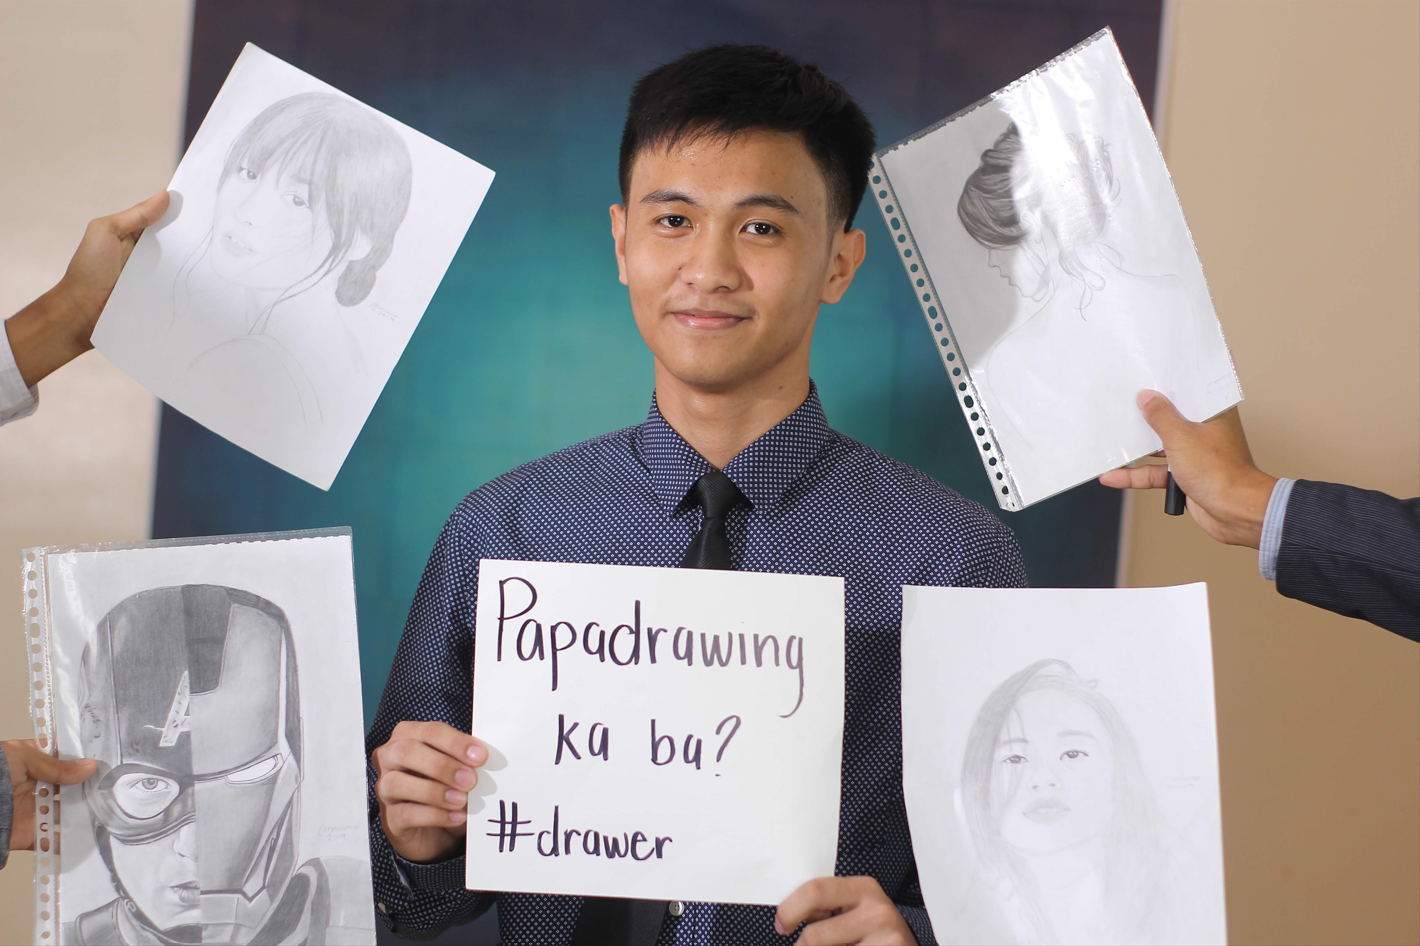 Papadrawing
ka ba?
#drawer
A